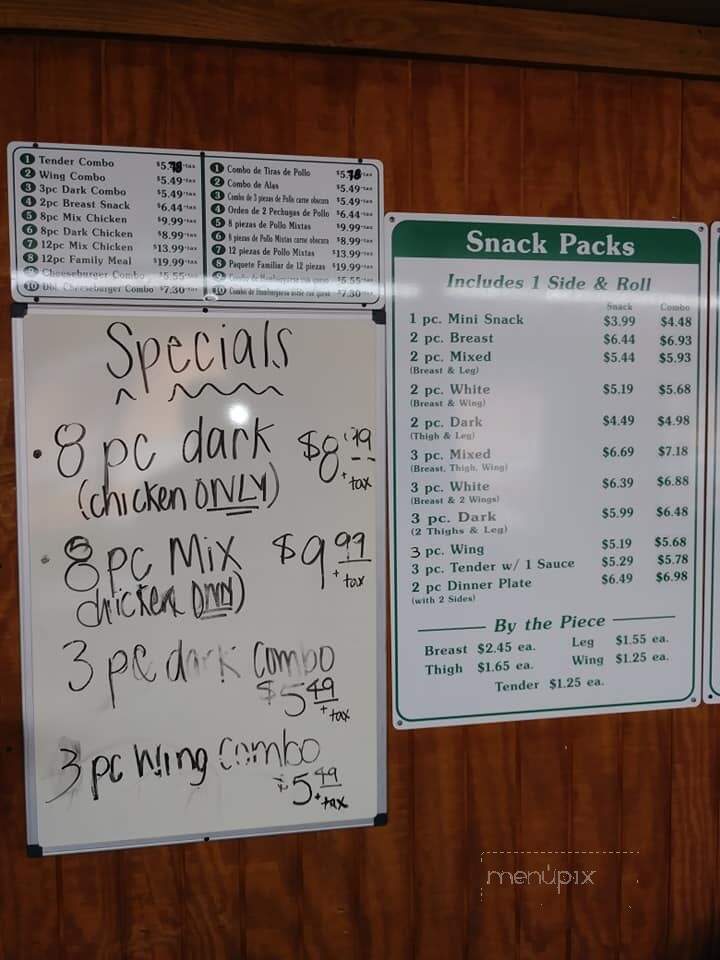 1 Tender Combo $5.78+tax
2 Wing Combo $5.49+tax
3 3pc Dark Combo $5.49+tax
4 2pc Breast Snack $6.44+tax
5 8pc Mix Chicken $9.99+tax
6 8pc Dark Chicken $8.99+tax
7 12pc Mix Chicken $13.99+tax
8 12pc Family Meal $19.99+tax
9 Cheeseburger Combo $5.55+tax
10 Dbl. Cheeseburger Combo $7.30+tax
1 Combo de Tiras de Pollo $5.78+tax
2 Combo de Alas $5.49+tax
3 Combo de 3 piezas de Pollo carne obscura $5.49+tax
4 Orden de 2 Pechugas de Pollo $6.44+tax
5 8 piezas de Pollo Mixtas $9.99+tax
6 8 piezas de Pollo Mixtas carne obscura $8.99+tax
7 12 piezas de Pollo Mixtas $13.99+tax
8 Paquete Familiar de 12 piezas $19.99+tax
9 Combo de Hamburguesa con queso $5.55+tax
10 Combo de Hamburguesa doble con queso $7.30+tax
Specials
• 8 pc dark $8.99
(chicken ONLY) + tax
• 8 pc Mix $9.99
chicken ONLY) + tax
3 pc dark combo
$5.49
+ tax
3 pc wing combo
$5.49
+ tax
Snack Packs
Includes 1 Side & Roll
Snack Combo
1 pc. Mini Snack $3.99 $4.48
2 pc. Breast $6.44 $6.93
2 pc. Mixed $5.44 $5.93
(Breast & Leg)
2 pc. White $5.19 $5.68
(Breast & Wing)
2 pc. Dark $4.49 $4.98
(Thigh & Leg)
3 pc. Mixed $6.69 $7.18
(Breast, Thigh, Wing)
3 pc. White $6.39 $6.88
(Breast & 2 Wings)
3 pc. Dark $5.99 $6.48
(2 Thighs & Leg)
3 pc. Wing $5.19 $5.68
3 pc. Tender w/ 1 Sauce $5.29 $5.78
2 pc Dinner Plate $6.49 $6.98
(with 2 Sides)
By the Piece
Breast $2.45 ea. Leg $1.55 ea.
Thigh $1.65 ea. Wing $1.25 ea.
Tender $1.25 ea.
menupix